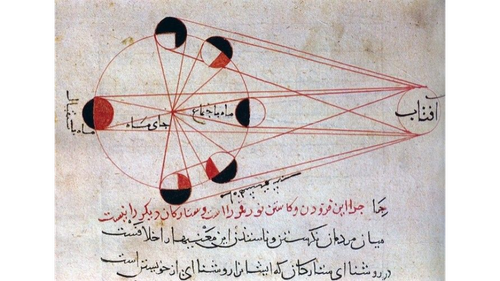 افتاب
ماه باجتماع
جای ماه
ماه باستقبال
جرا این فزودن و کاستن نور قمر را است و ستارکان دیکر را نیست
میان مردمان این
در روشنای ستارکان که ایشانرا روشنای از خویشتن است